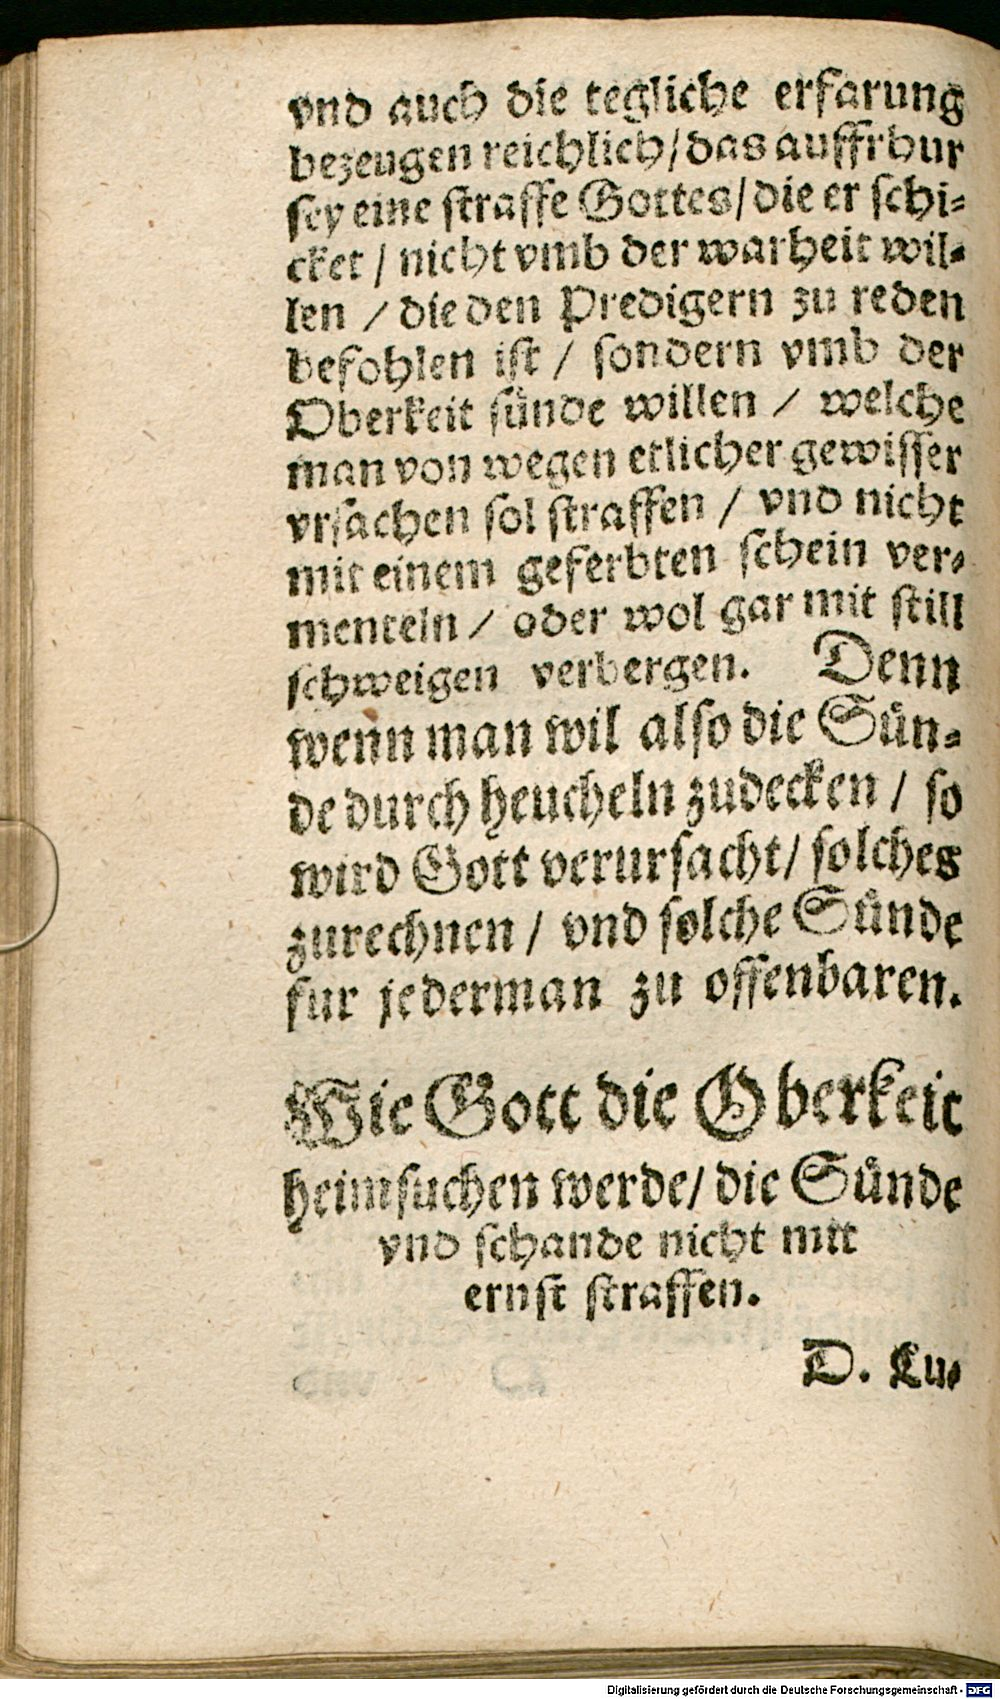 vnd auch die tegliche erfarung
bezeugen reichlich/das auffrhur
sey eine straffe Gottes/die er schi-
cket / nicht vmb der warheit wil-
len / die den Predigern zu reden
befohlen ist / sondern vmb der
Oberkeit sünde willen / welche
man von wegen etlicher gewisser
vrsachen sol straffen / vnd nicht
mit einem geferbten schein ver-
menteln / oder wol gar mit still
schweigen verbergen. Denn
wenn man wil also die Sün-
de durch heucheln zudecken / so
wird Gott verursacht/ solches
zurechnen / vnd solche Sünde
fur jederman zu offenbaren.
Wie Gott die Oberkeit
heimsuchen werde/ die Sünde
vnd schande nicht mit
ernst straffen.
D. Lu-
Digitalisierung gefördert durch die Deutsche Forschungsgemeinschaft - DFG